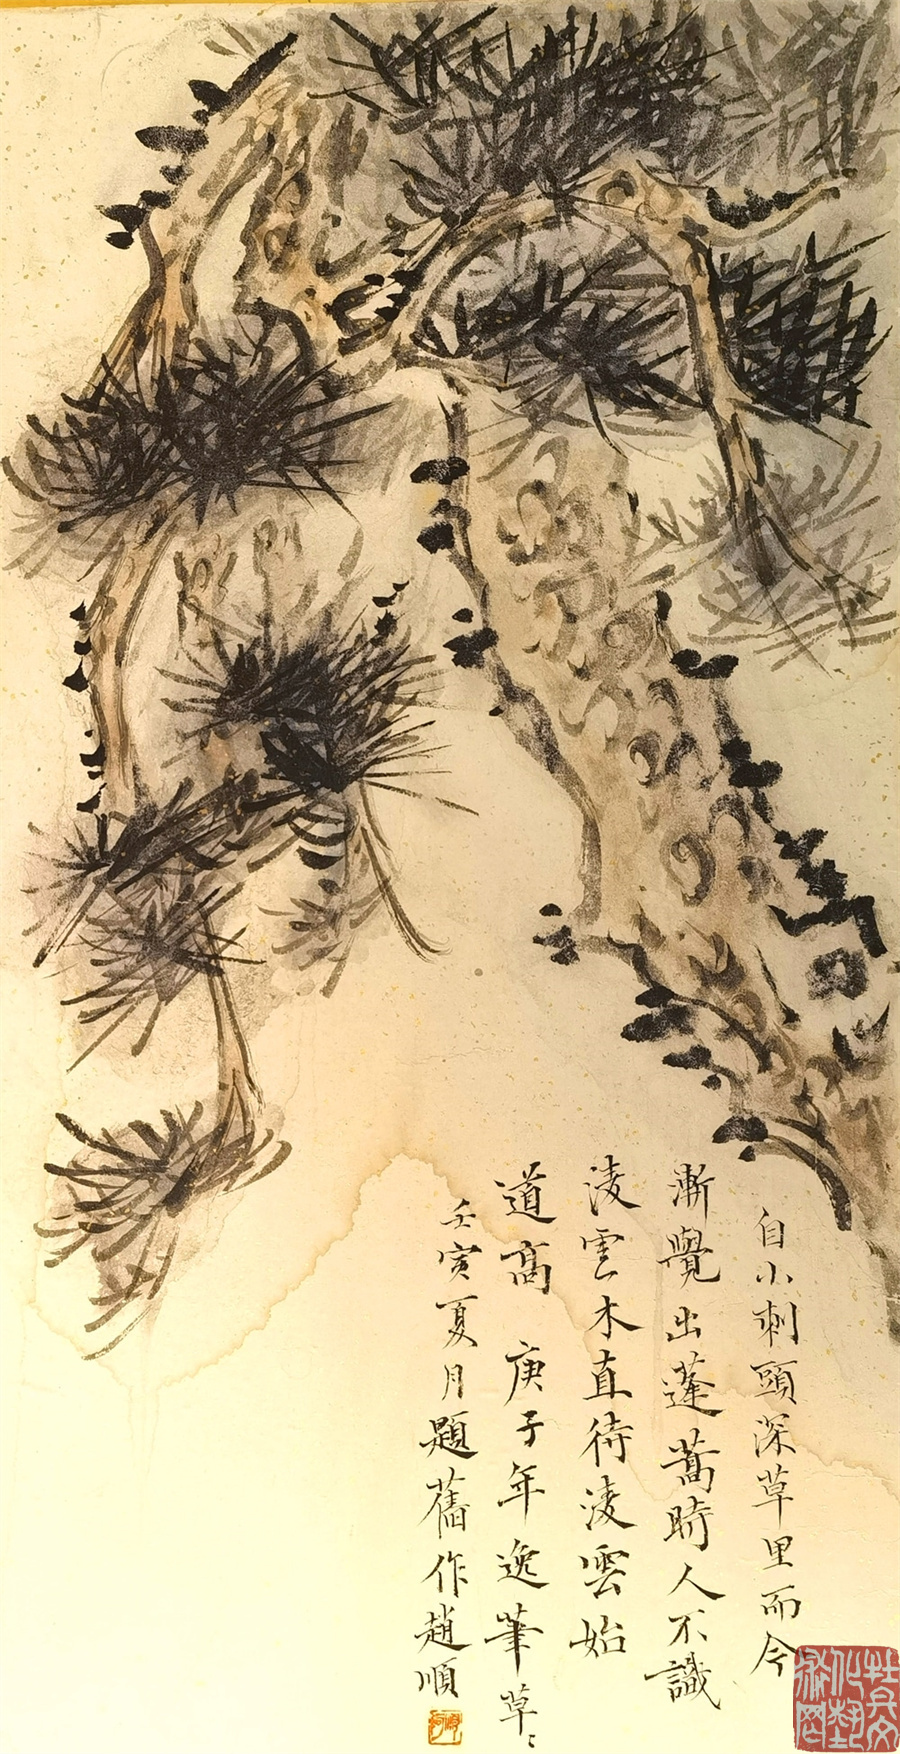 自小刺頭深草里而今
漸覺出蓬蒿時人不識
淩雲木直待淩雲始
道高 庚子年逸筆草〻
壬寅夏月題舊作趙順